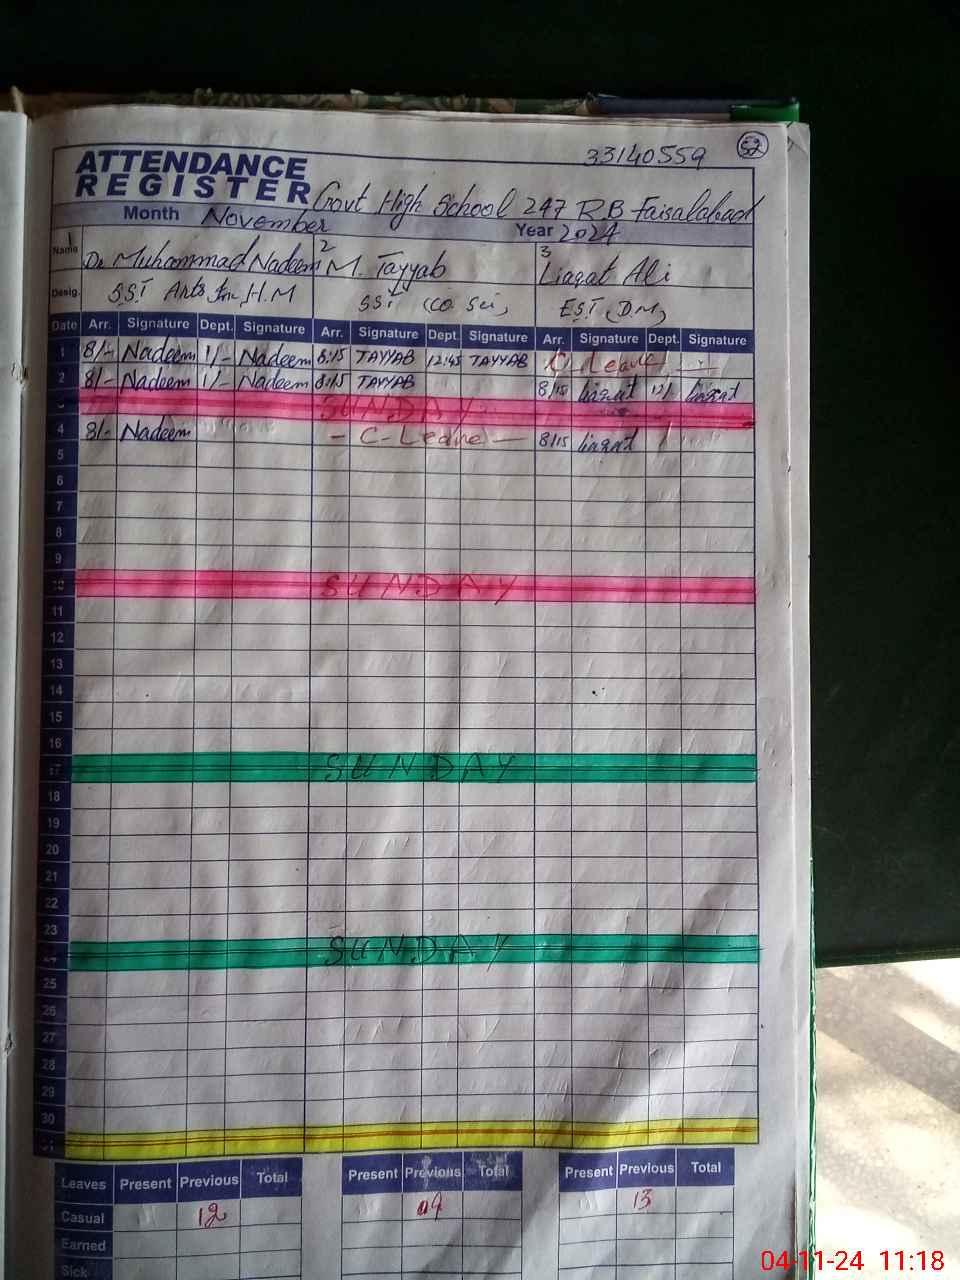 33140559 52
ATTENDANCE
REGISTER Govt High School 247 RB Faisalabad
Month November Year 2024
Name 1 Dr Muhammad Nadeem 2 M. Tayyab 3 Liaqat Ali
Desig. SST Arts for H.M SST (CO Sci) EST (D.M)
Date Arr. Signature Dept. Signature Arr. Signature Dept. Signature Arr. Signature Dept. Signature
1 8/- Nadeem 1/- Nadeem 8:15 TAYYAB 12:45 TAYYAB C. Leave
2 8/- Nadeem 1/- Nadeem 8:15 TAYYAB 8/15 liaqat 12/ liaqat
3 SUNDAY
4 8/- Nadeem - C - Leave - 8/15 liaqat
5
6
7
8
9
10 SUNDAY
11
12
13
14
15
16
17 SUNDAY
18
19
20
21
22
23
24 SUNDAY
25
26
27
28
29
30
31
Leaves Present Previous Total Present Previous Total Present Previous Total
Casual 12 09 13
Earned
Sick
04-11-24 11:18